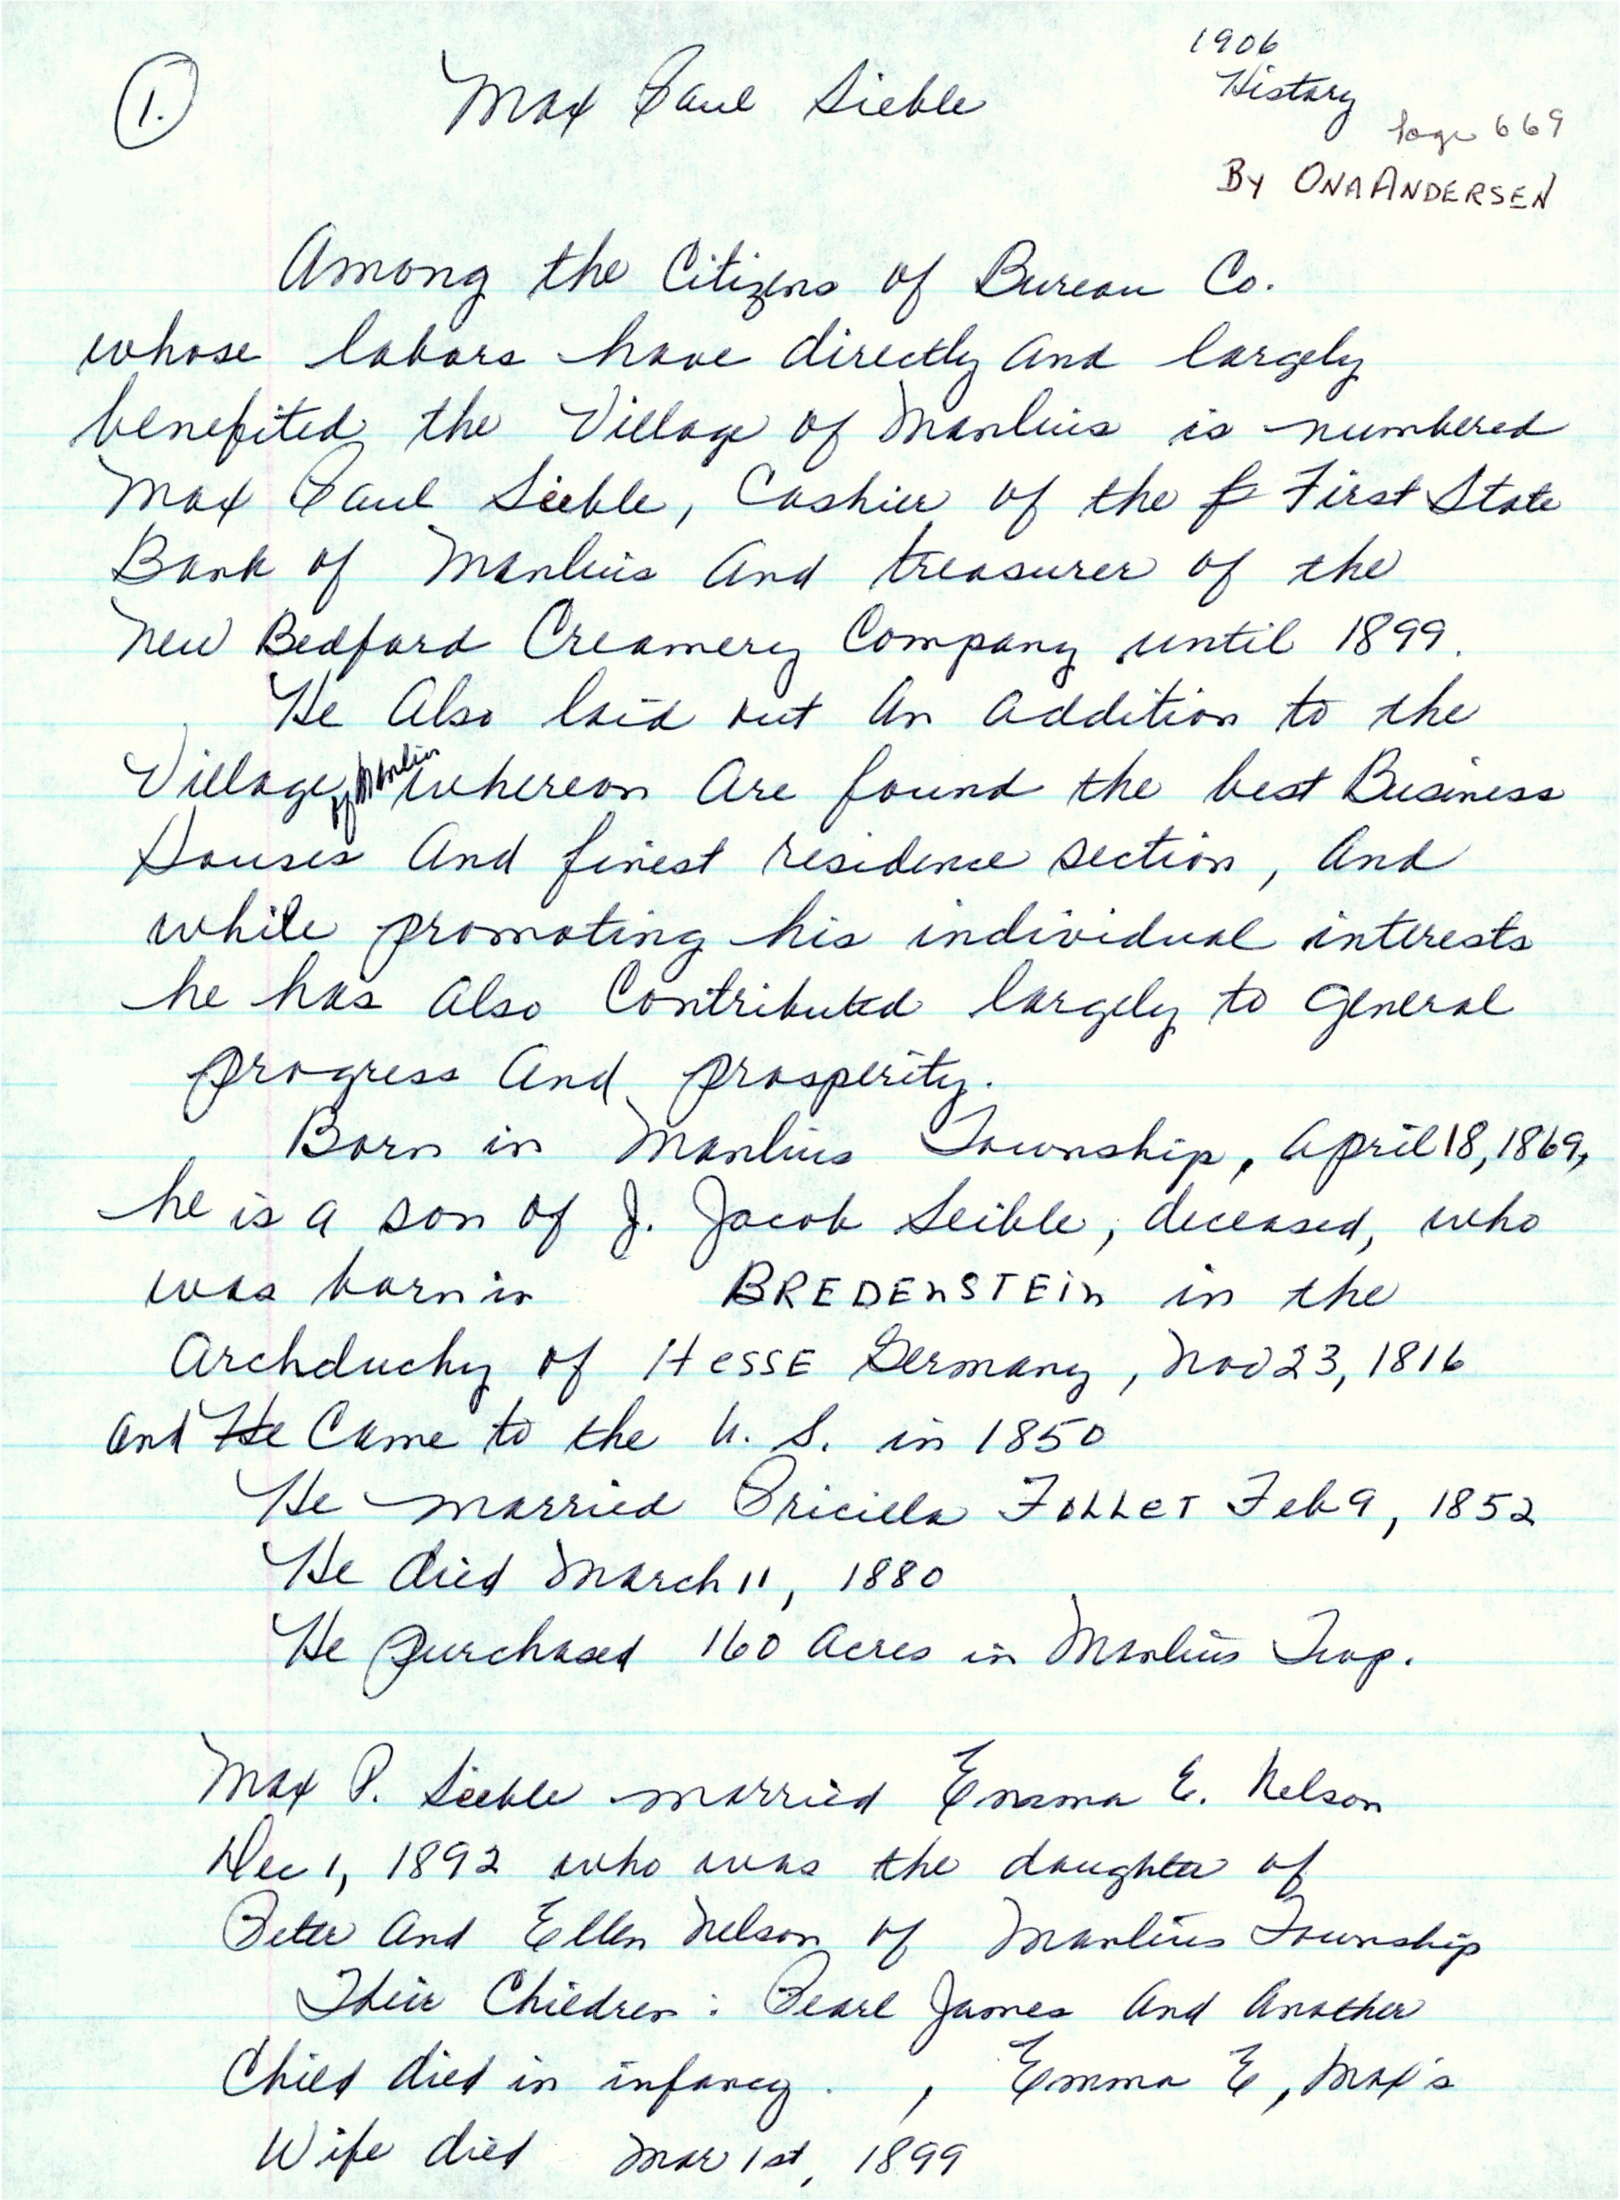 1.
Max Paul Sieble
1906
History
Page 669
By ONA ANDERSEN
Among the Citizens of Bureau Co.
whose labors have directly and largely
benefited the Village of Manlius is numbered
Max Paul Sieble, Cashier of the F First State
Bank of Manlius and treasurer of the
New Bedford Creamery Company until 1899.
He also laid out an addition to the
Village of Manlius whereon are found the best Business
Houses and finest residence section, and
while promoting his individual interests
he has also Contributed largely to general
progress and prosperity.
Born in Manlius Township, April 18, 1869,
he is a son of J. Jacob Seible, deceased, who
was born in BREDENSTEIN in the
Archduchy of HESSE Germany, Nov 23, 1816
and He Came to the U. S. in 1850
He married Pricilla FOLLET Feb 9, 1852
He died March 11, 1880
He purchased 160 acres in Manlius Twp.
Max P. Sieble married Emma E. Nelson
Dec 1, 1892 who was the daughter of
Peter and Ellen Nelson of Manlius Township
Their Children: Pearl James and another
Child died in infancy. , Emma E, Max's
Wife died Mar 1st, 1899